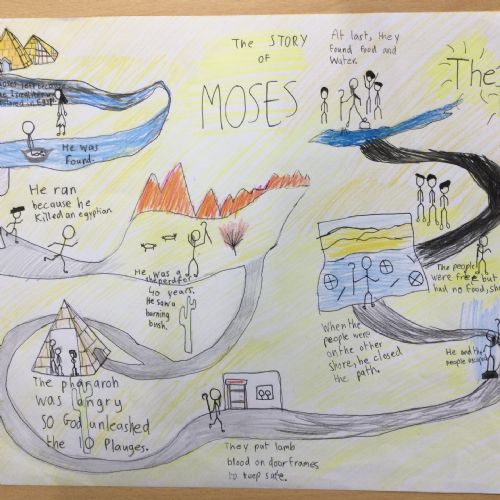 The STORY
OF
MOSES
At last, they
found food and
Water.
The
moses left because
He was
found.
He ran
because he
Killed an egyptian
He was a
sheperd for
40 years.
He saw a
burning
bush.
The pharaoh
was angry
SO God unleashed
the 10 Plauges.
They put lamb
blood on door frames
to keep safe.
He and the
people
When the
people were
on the other
shore, he closed
the path.
The people
were free but
had no food,